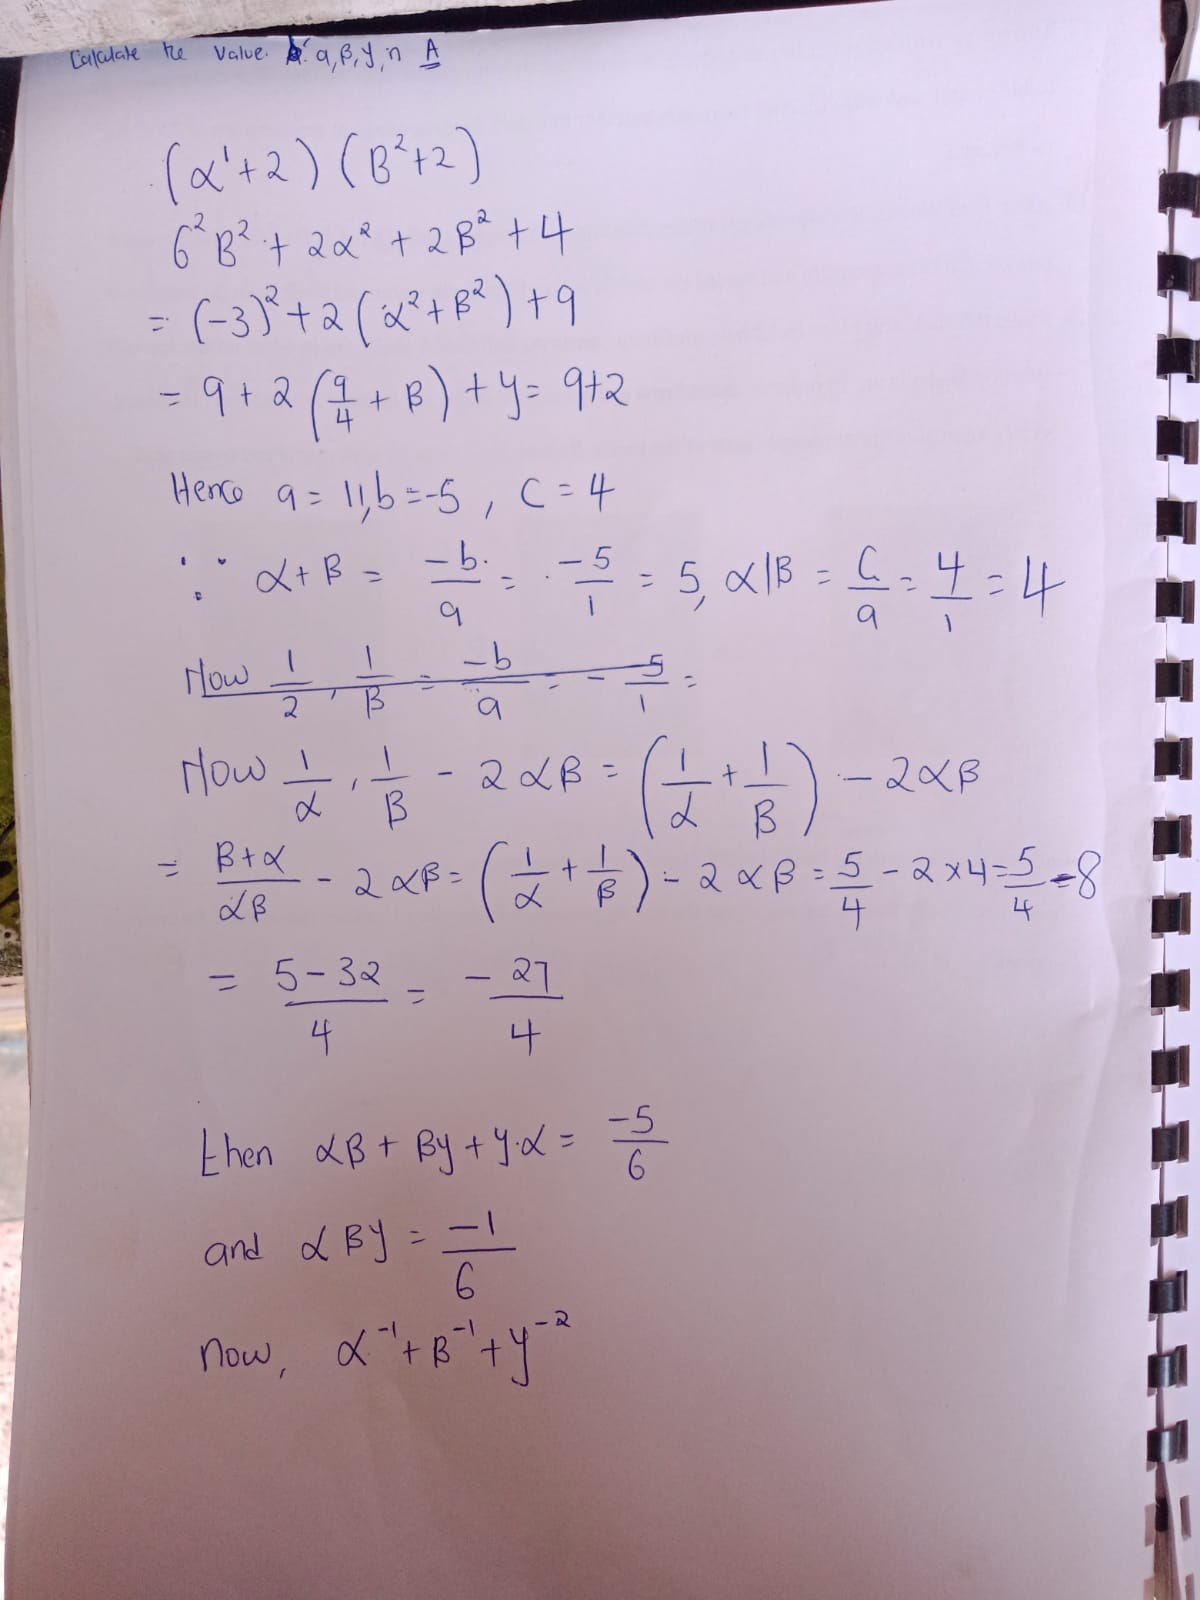 Calculate the value. a, β, y, n A
(α¹+2) (B²+2)
6²B² + 2α² + 2B² + 4
= (-3)² + 2(α² + B²) + 9
= 9 + 2(9/4 + B) + y = 9+2
Hence a = 11, b = -5, C = 4
∵ α + B = -b/a = -5/1 = 5, α|B = C/a = 4/1 = 4
Now 1/2, 1/B = -b/a = - 5/1 =
Now 1/α, 1/B - 2αB = (1/α + 1/B) - 2αB
= B+α/αB - 2αB = (1/α + 1/B) - 2αB = 5/4 - 2×4 = 5/4 - 8
= 5-32/4 = -27/4
then αB + By + y·α = -5/6
and αBy = -1/6
now, α⁻¹ + B⁻¹ + y⁻²